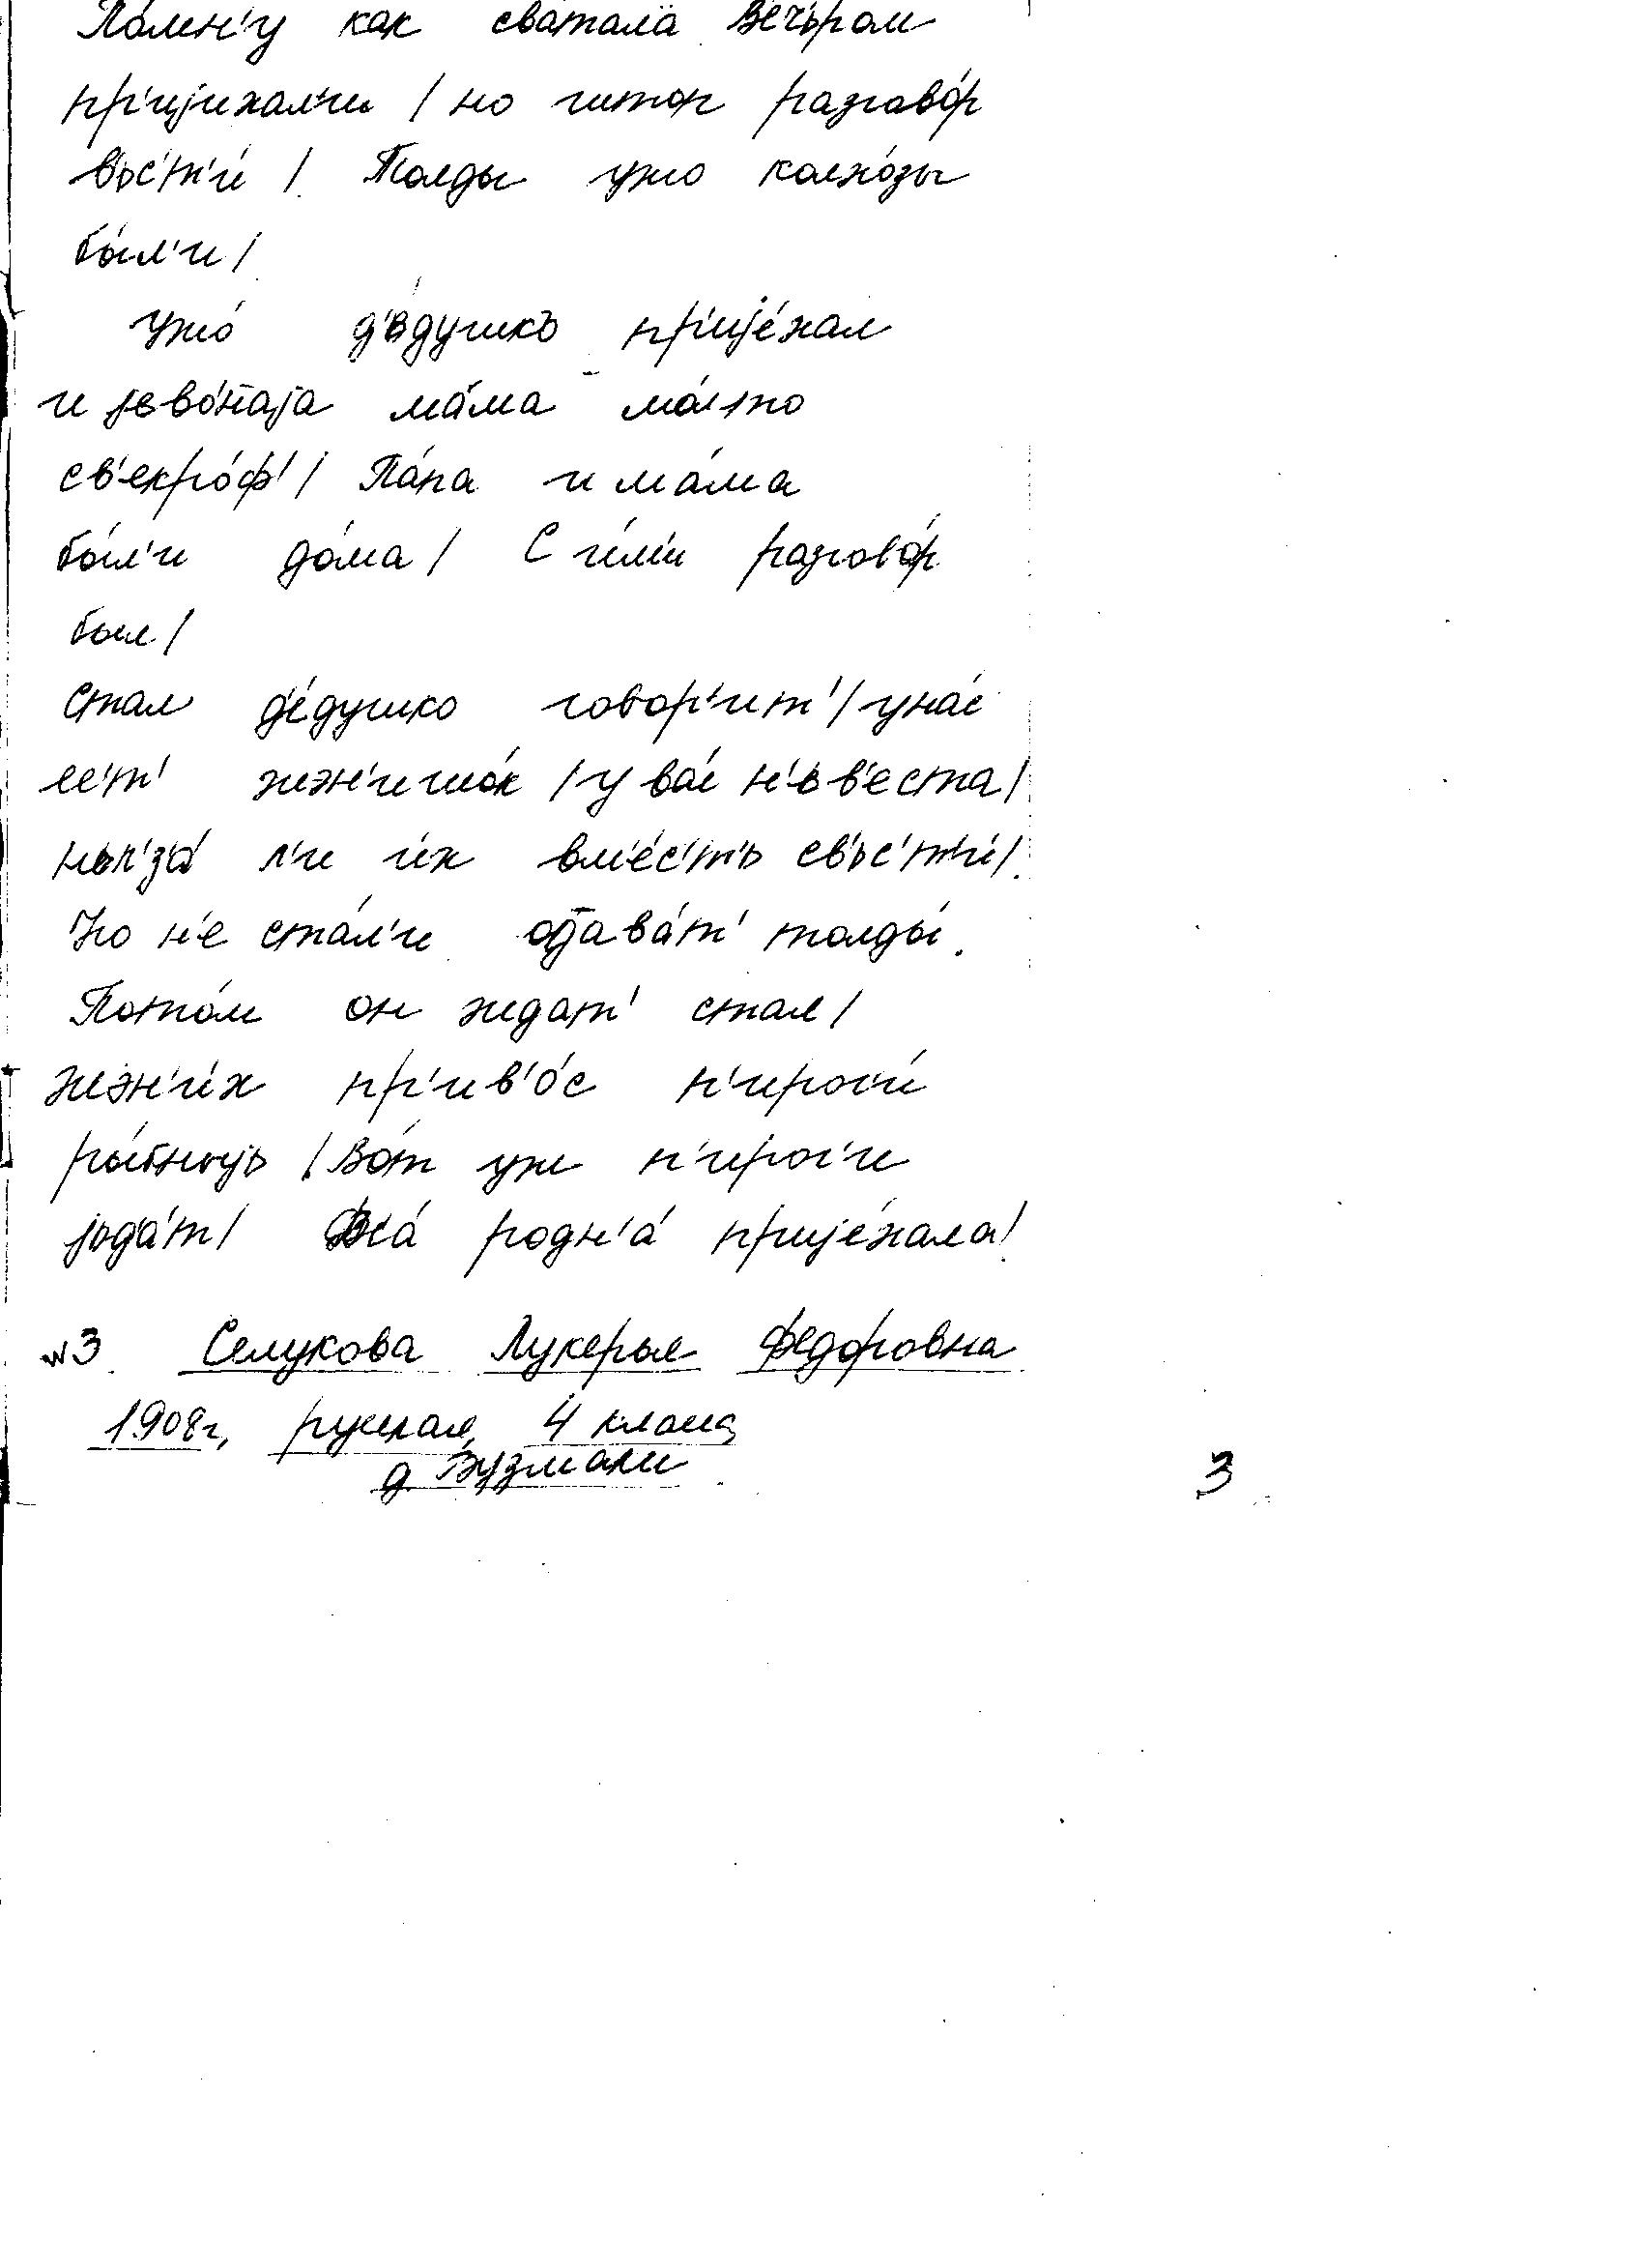 По́мн'у как сва́тала Ве́чъром
пр'ијихал'и / но штоп разгово́р
въс'т'и́ / Толды ужо колхо́зы
бы́л'и /
Ужо́ д'е́душкъ пр'ије́хал
и јево́наја ма́ма мо́што
св'екро́ф' / Па́па и ма́ма
бы́л'и до́ма / С и́м'и разгово́р
был /
Стал д'е́душко говор'ит' / у на́с
ес'т' жэн'ишо́к / у ва́с н'ьв'еста /
ньл'з'а́ л'и и́х вм'е́с'т'ь св'ьс'т'и́ /
Но н'е ста́л'и отава́т' толды́.
Пото́м он ждат' стал /
жэн'и́х пр'ив'о́с п'ироги́
ры́бныјь / Во́т уж п'ирог'и
јьд'а́т / Вс'а́ родн'а́ пр'ије́хала /
№3 Селукова Лукерья Федоровна
1908г, русская, 4 класса
д. Вузмаки
3